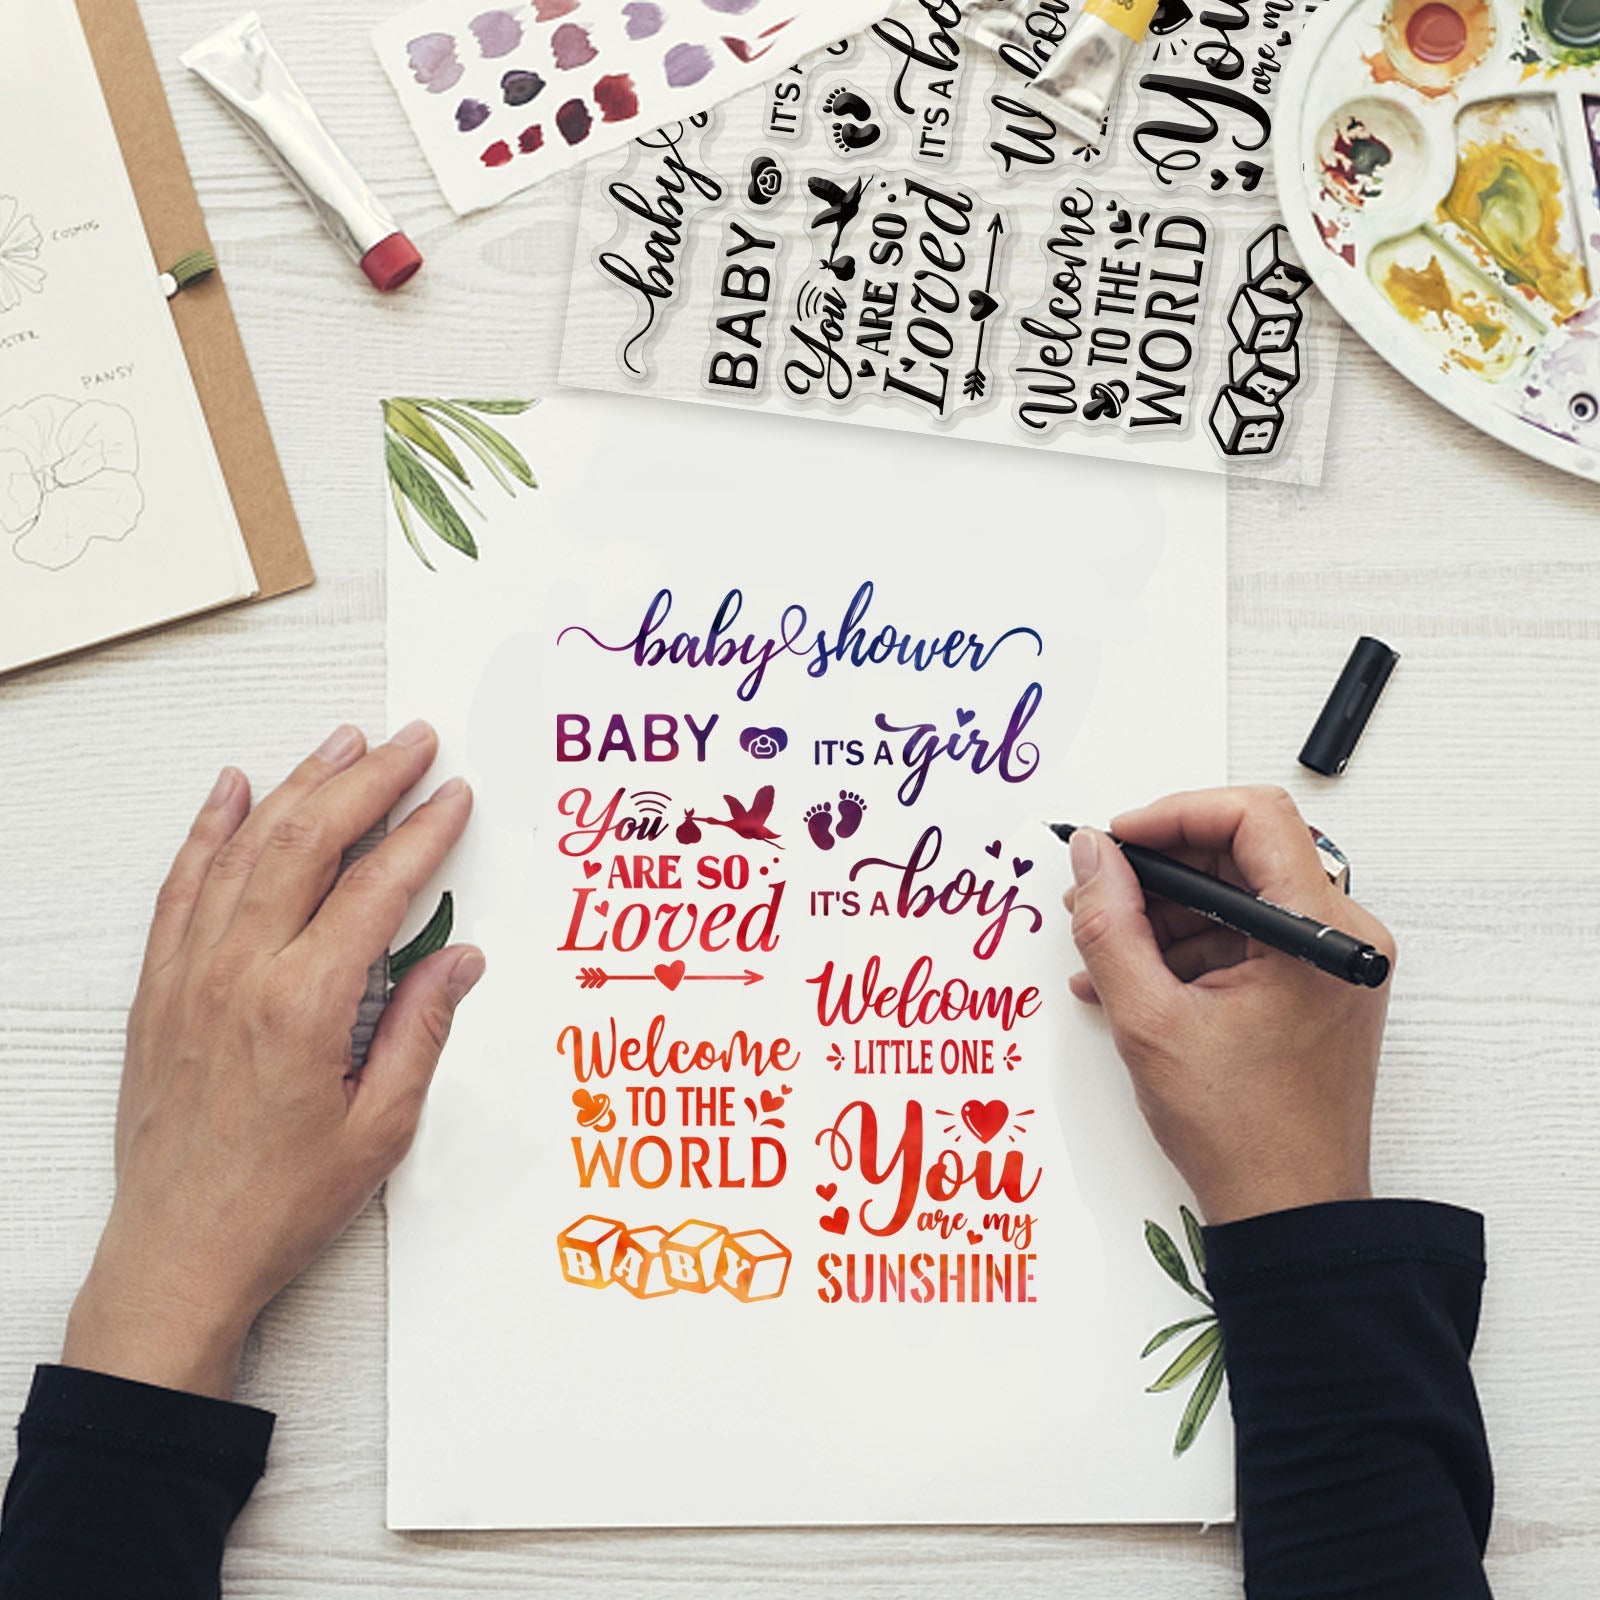 COSMOS
PANSY
baby
BABY
You
ARE SO
Loved
Welcome
TO THE
WORLD
BABY
IT'S A
IT'S A
You
are
baby shower
BABY
IT'S A girl
You
ARE SO
Loved
IT'S A boy
Welcome
LITTLE ONE
Welcome
TO THE
WORLD
You
are my
SUNSHINE
BABY